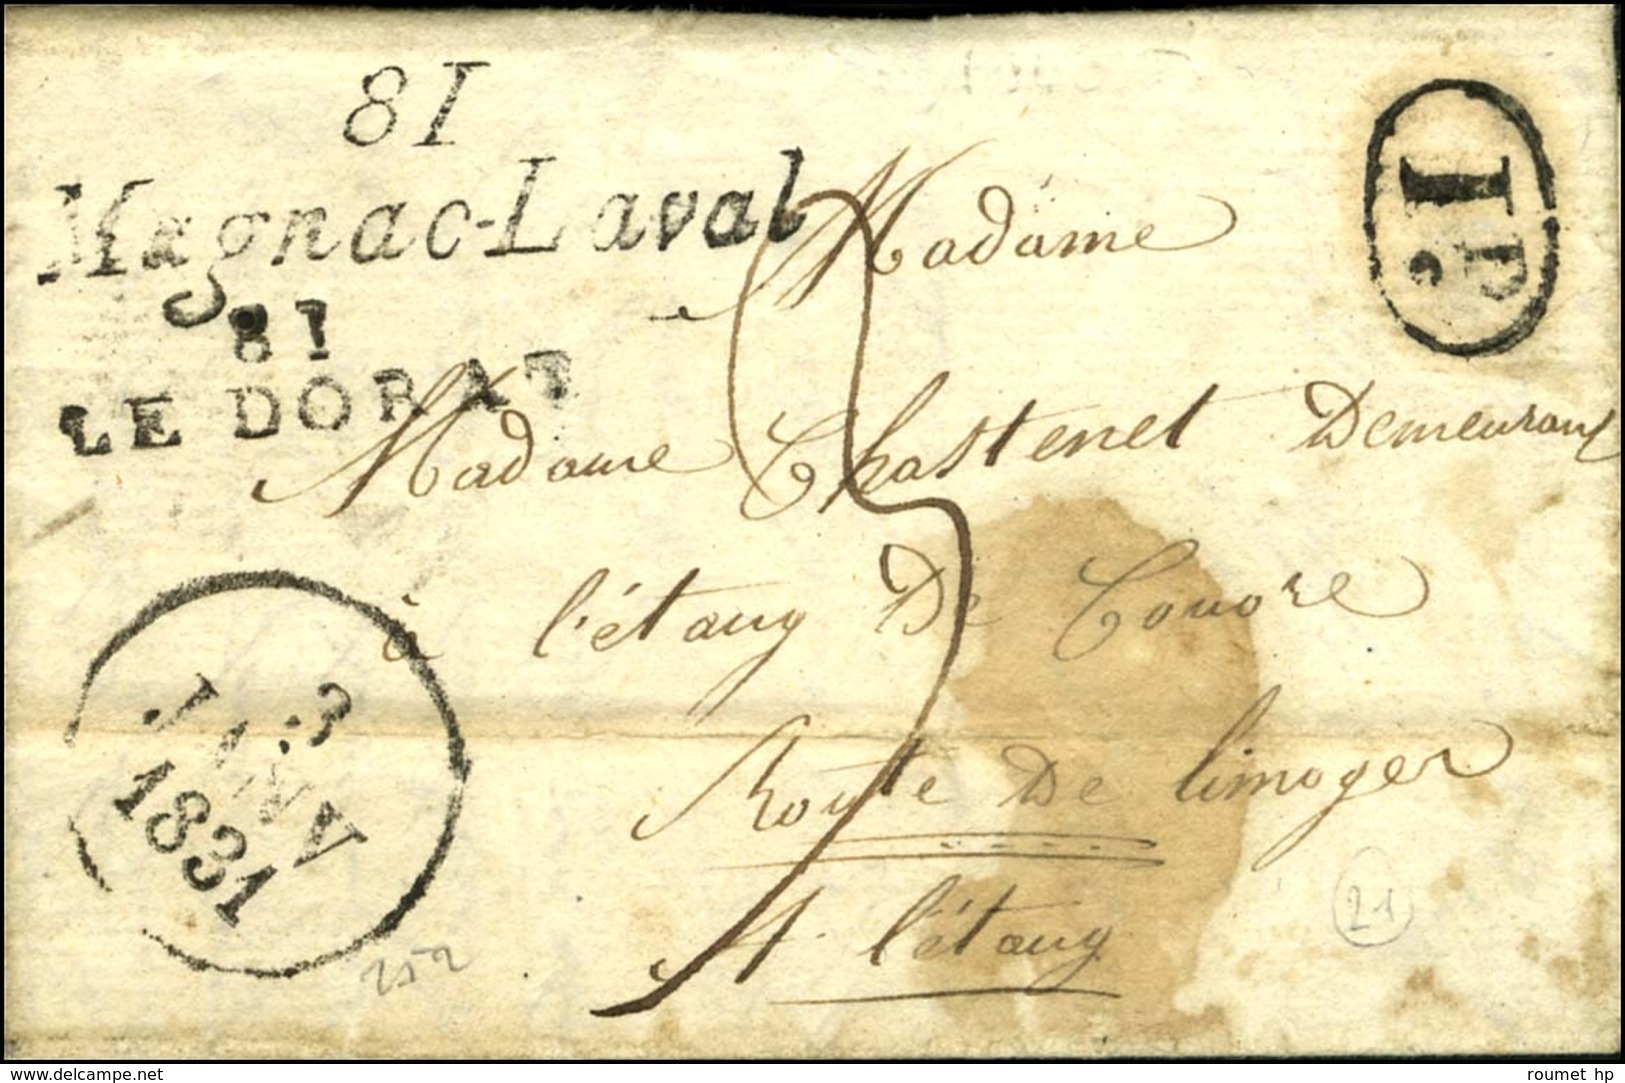 81
Magnac-Laval
81
LE DORAT
IP
e
Madame
Madame Chastenet Demeurant
à l'étang De Couore
Route De limoges
A. l'étang
3
JANV
1831
252
21
www.delcampe.net
roumet hp